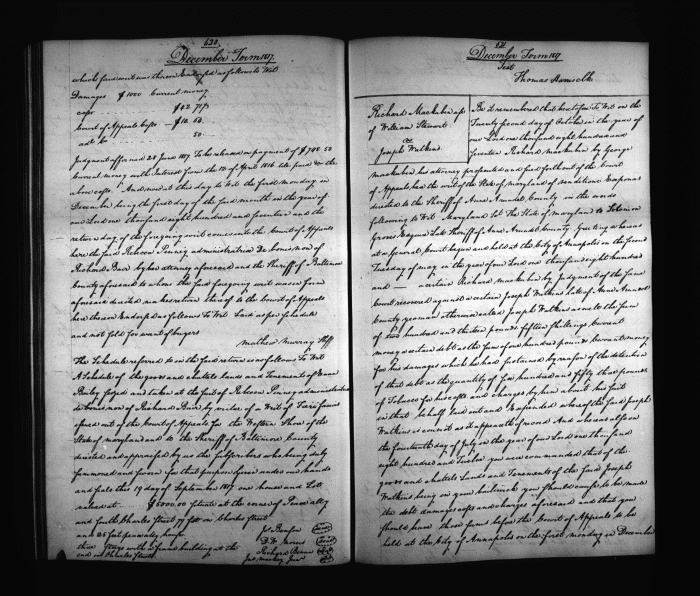 630
December Term 1817
which said writ was thereon Endorsed as follows to Wit
Damages $1000 Current money
costs $22.71
Court of Appeals costs $10.60
50
Judgment affirmed 20 June 1817 To be released on payment of $708.50
Current money with Interest from the 10 of April 1816 till paid & the
above costs And now at this day to Wit the first monday in
December being the first day of the said month in the year of
our Lord one thousand eight hundred and seventeen and the
return day of the foregoing writ comes into the Court of Appeals
here the said Rebecca Pennix administratrix De bonis non of
Richard by her attorney aforesaid and the Sheriff of Baltimore
County aforesaid to whom the said foregoing writ was in form
aforesaid directed makes return thereof to the Court of Appeals
here thereon Endorsed as follows To Wit Laid as per Schedule
and not sold for want of buyers
Mathew Murray Shff
The Schedule referred to in the said return is as follows To Wit
A Schedule of the goods and chattels lands and Tenements of
seized and taken at the suit of Rebecca Pennix administratrix
de bonis non of Richard by virtue of a Writ of Fieri facias
issued out of the Court of Appeals for the Western Shore of the
State of maryland and to the Sheriff of Baltimore County
directed and appraised by us the subscribers who being duly
summoned and sworn for that purpose Given under our hands
and seals this 19 day of September 1817 one house and Lott
valued at $6000.00 situate at the corner of
and South Charles Street 77 feet on Charles Street
and 25 feet
three story with a frame building at the
end on Charles Street
December Term 1817
Test
Thomas Harris Clk
Richard Mackubin use
of William Stewart
vs
Joseph Watkins
Be it remembered that heretofore To Wit on the
Twenty second day of October in the year of
our Lord one thousand eight hundred and
seventeen Richard Mackubin by George
Mackubin his attorney prosecuted and sued forth out of the Court
of Appeals here the writ of the State of Maryland of Venditioni Exponas
directed to the Sheriff of Anne Arundel County in the words
following to Wit Maryland Sct The State of Maryland to Solomon
Groves Esquire Late Sheriff of Anne Arundel County Greeting Whereas
at a General Court begun and held at the City of Annapolis on the second
Tuesday of may in the year of our Lord one thousand eight hundred
and — a certain Richard Mackubin by Judgment of the same
Court recovered against a certain Joseph Watkins late of Anne Arundel
County yeoman otherwise called Joseph Watkins as one to the sum
of two hundred and thirteen pounds fifteen shillings Current
money a certain debt as the sum of four hundred pounds Current money
for his damages which he had sustained by reason of the detention
of that debt as the quantity of Six hundred and fifty that pounds
of Tobacco for his costs and charges by him about his suit
in that behalf laid out and Expended whereof the said Joseph
Watkins is convict as it appears of record And whereas also on
the fourteenth day of July in the year of our Lord one thousand
eight hundred and Twelve you were commanded that of the
goods and chattels Lands and Tenements of the said Joseph
Watkins being in your bailiwick you should cause to be made
the debt damages costs and charges aforesaid and that you
should have those sums before the Court of Appeals to be
held at the City of Annapolis on the first monday in December